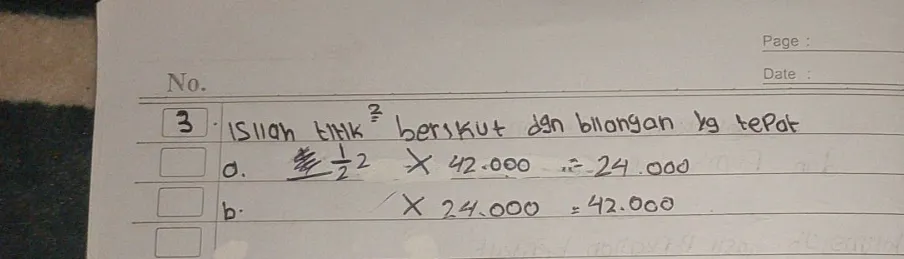 Page :
Date :
No.
3. Isilah titik² berikut dgn bilangan yg tepat
a. 1/2 2 X 42.000 = 24.000
b. X 24.000 = 42.000